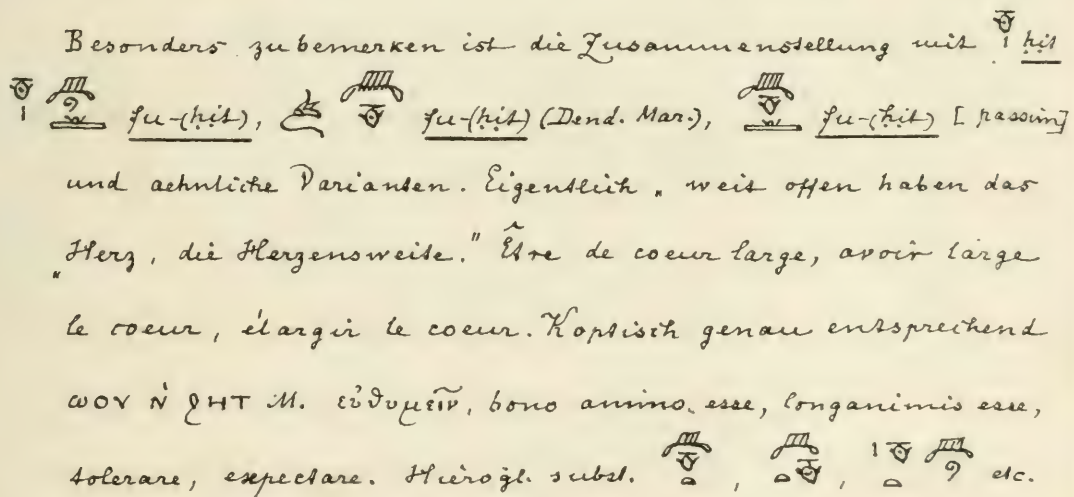 Besonders zu bemerken ist die Zusammenstellung mit ḥit
fu-(ḥit), fu-(ḥit) (Dend. Mar.), fu-(ḥit) [passim]
und aehnliche Varianten. Eigentlich „weit offen haben das
„Herz, die Herzensweite." Être de coeur large, avoir large
le coeur, élargir le coeur. Koptisch genau entsprechend
ⲱⲟⲩ ⲛ̀ ϩⲏⲧ M. εὐθυμεῖν, bono animo esse, longanimis esse,
tolerare, expectare. Hierogl. subst. , , etc.